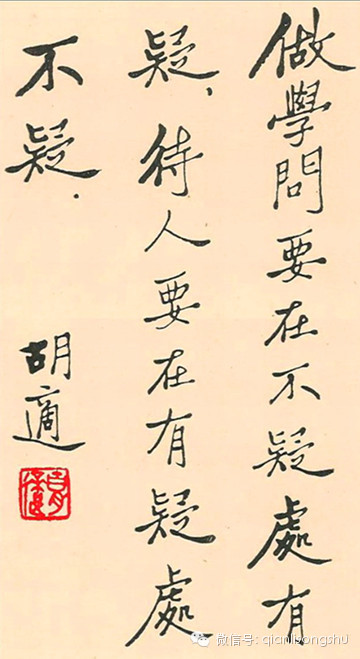 做學問要在不疑處有
疑，待人要在有疑處
不疑．
胡適
微信号: qianlibangshu